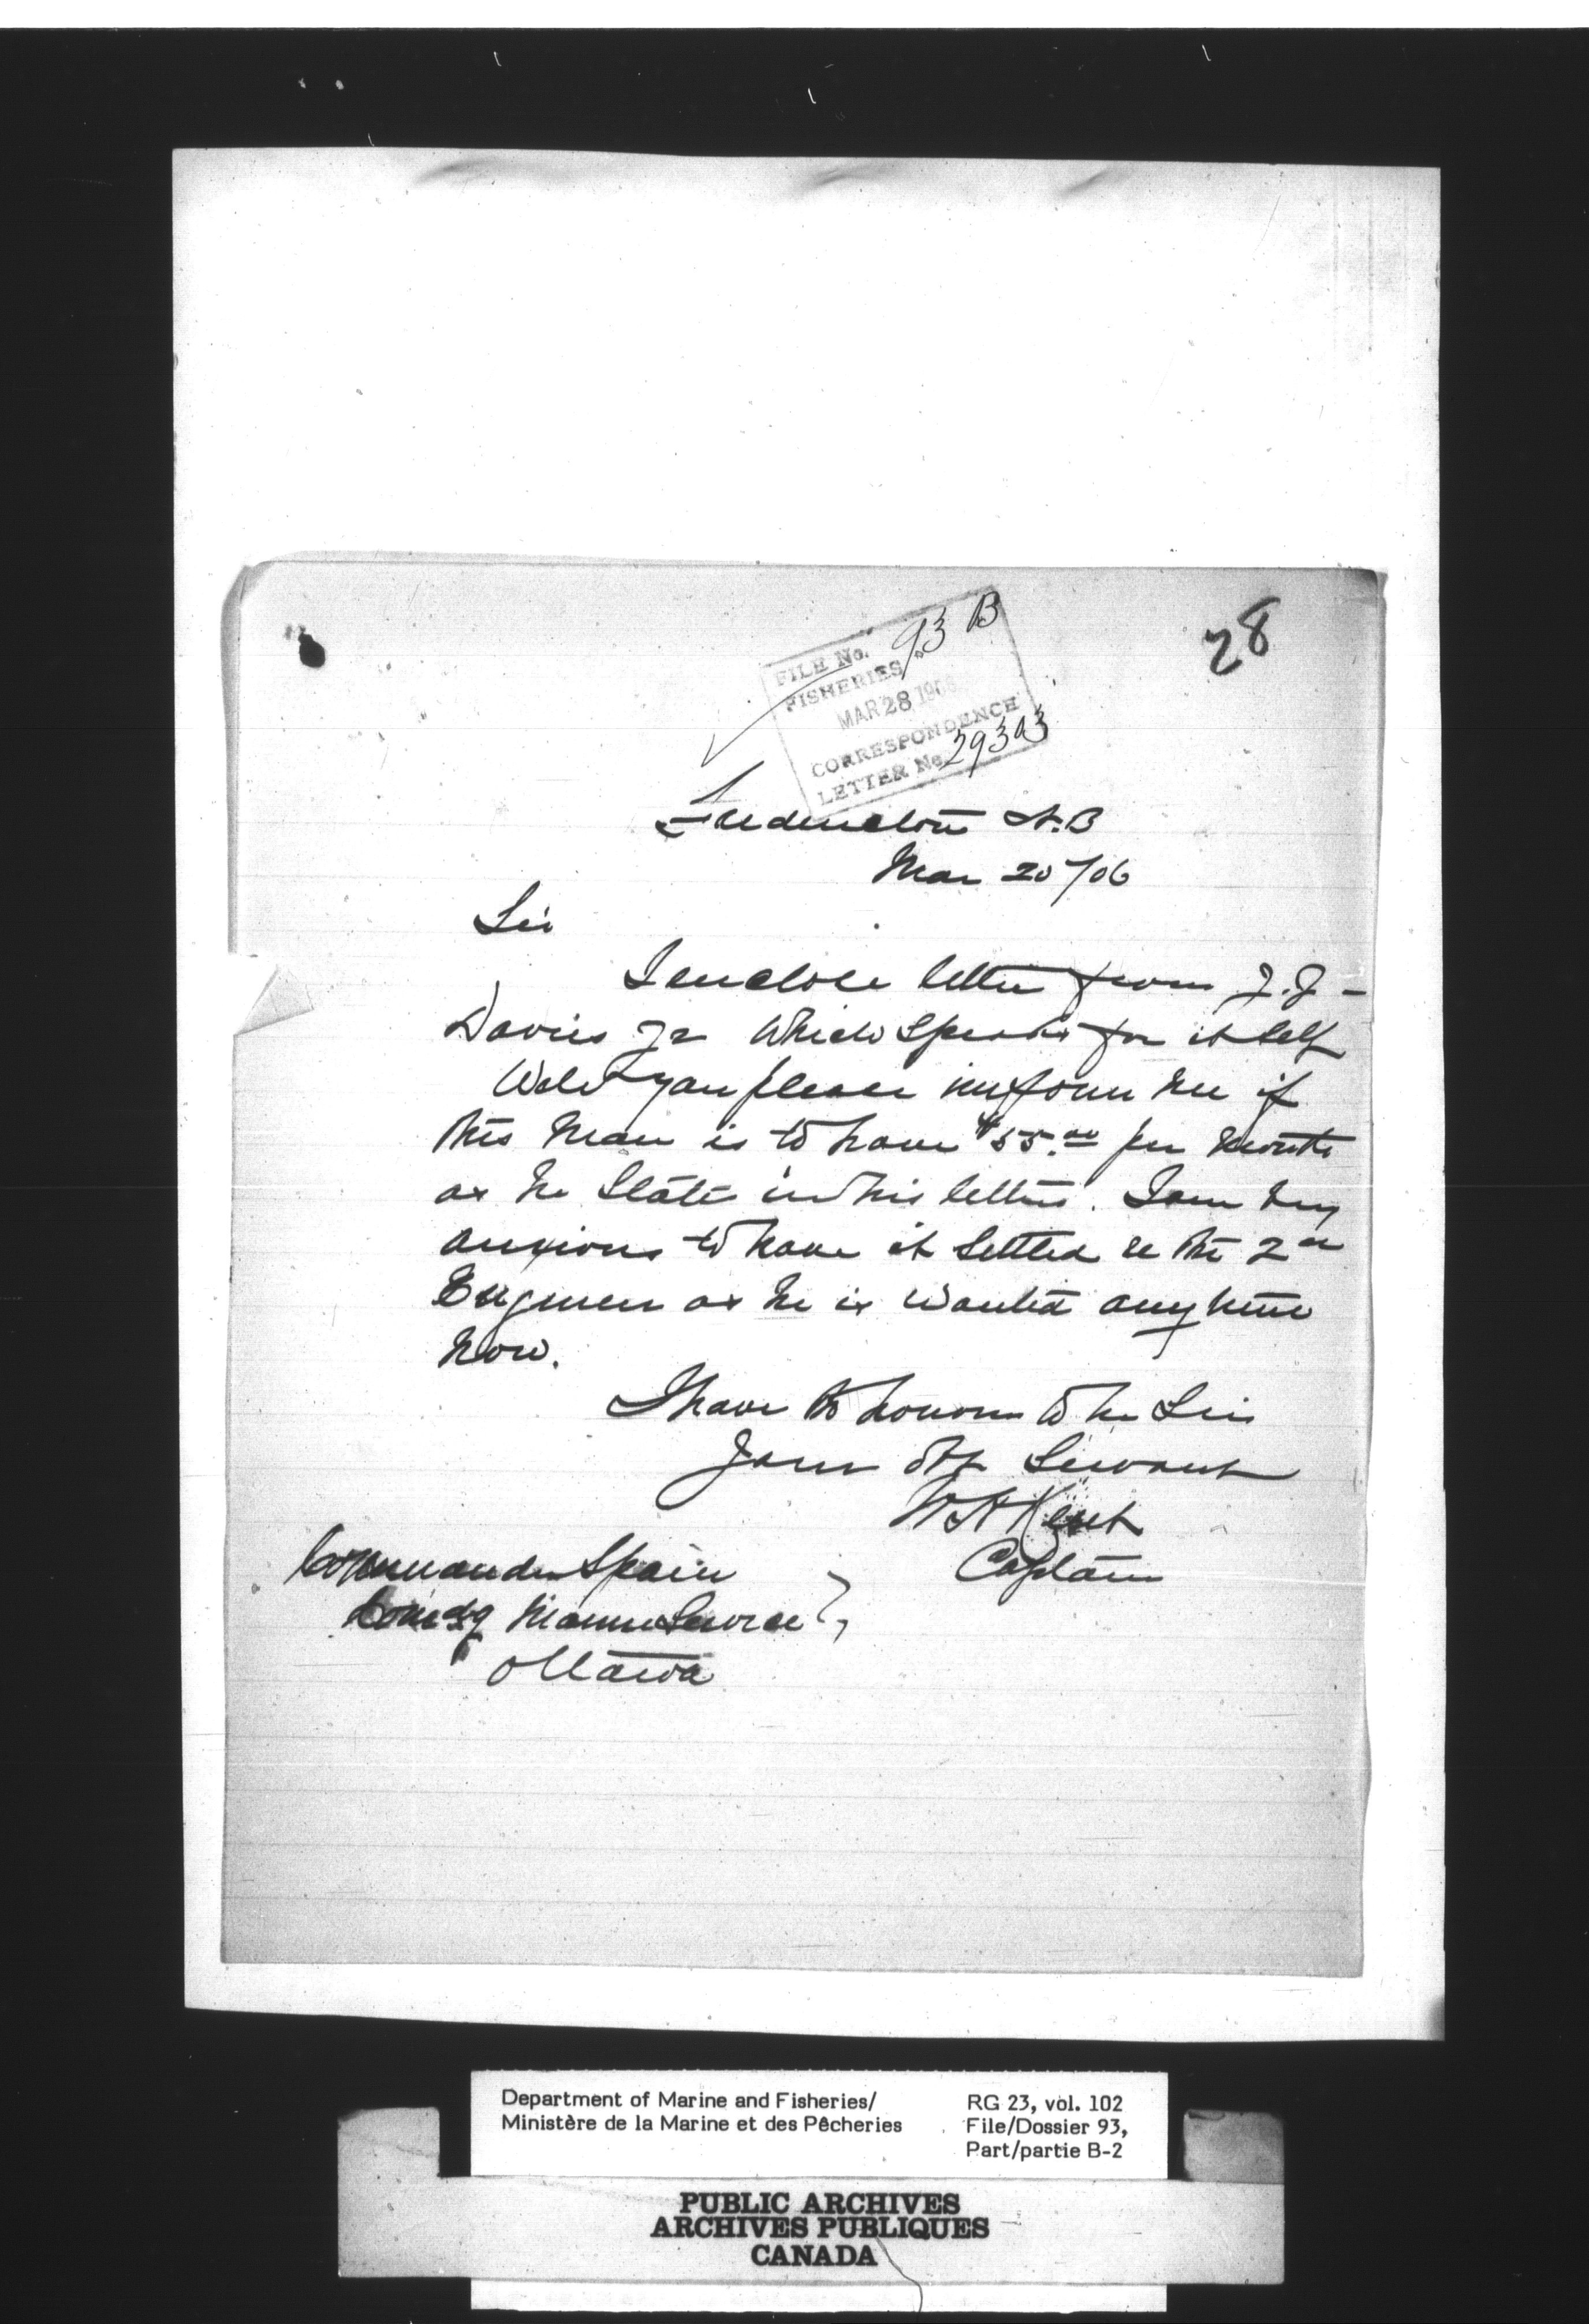 28
FILE No. 93 B
FISHERIES
MAR 28 190
CORRESPONDENCE
LETTER No. 29393
Fredericton N.B
Mar 20/06
Sir
I enclose letter from J.J-
Davies Jr which speaks for it self
Will you please inform me if
this man is to have $55.00 per month
as he state in his letter. I am very
anxious to have it settled re the 2nd
Engineer as he is wanted any time
now.
I have the honour to be Sir
Your Obt Servant
W H Kent
Captain
Commander Spain
Comdg Marine Service
Ottawa
Department of Marine and Fisheries/
Ministère de la Marine et des Pêcheries
RG 23, vol. 102
File/Dossier 93,
Part/partie B-2
PUBLIC ARCHIVES
ARCHIVES PUBLIQUES
CANADA